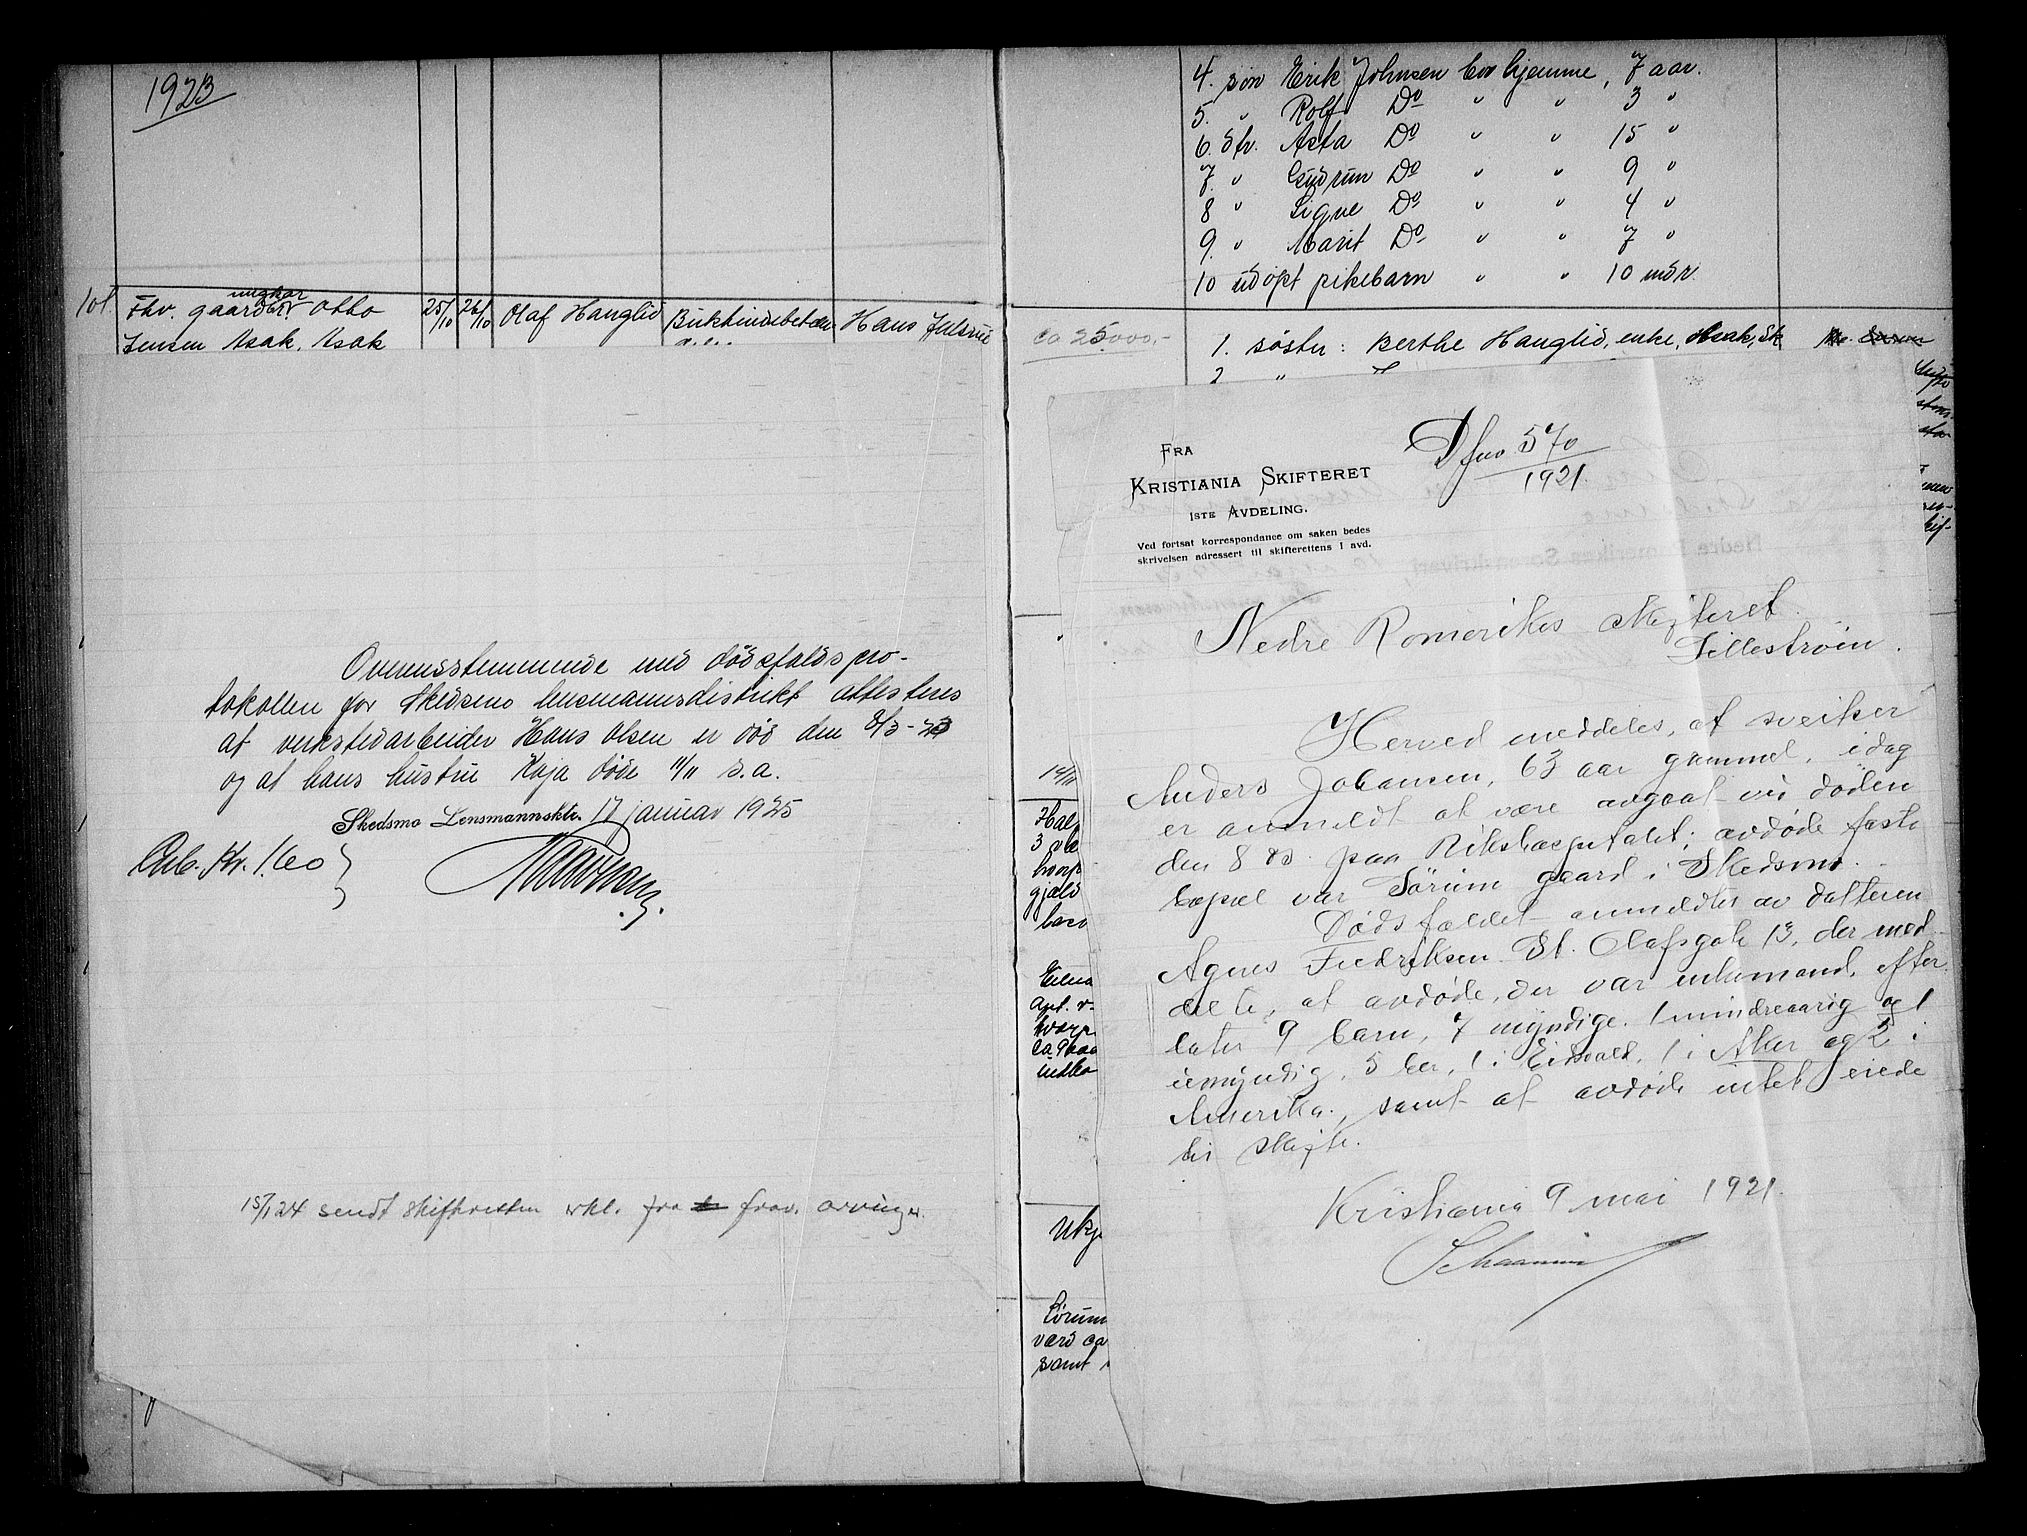 1923
101. Fhv. gaardbr. ungkar Otto
Jensen Asak, Asak
25/10 26/10 Olaf Hanglid
Hans Julsrud
Overensstemmende med dødsfaldspro-
tokollen for Skedsmo lensmannsdistrikt attesteres
at verkstedarbeider Hans Olsen er død den 8/3-23
og at hans hustru Kaja døde 11/11 s.a.
Skedsmo Lensmannsktr. 17 januar 1925
Geb. Kr. 1.60
15/1 24 sendt skifteretten erkl. fra frav. arvinger.
4. søn Erik Johnsen bor hjemme, 7 aar.
5. " Rolf Do " " 3 "
6. dtr. Asta Do " " 15 "
7. " Gudrun Do " " 9 "
8 " Signe Do " " 4 "
9. " Marit Do " " 7 "
10 udøpt pikebarn " " 10 mdr
ca 25000,-
1. søster: Berthe Hanglid, enke, Asak, Sk
2 "
FRA
KRISTIANIA SKIFTERET
1STE AVDELING.
Ved fortsat korrespondance om saken bedes
skrivelsen adressert til skifterettens I avd.
Dfno 570
1921.
Nedre Romerikes skifteret
Lillestrøm.
Herved meddeles, at sveiser
Anders Johansen, 63 aar gammel, idag
er anmeldt at være avgaat ved døden
den 8 ds. paa Rikshospitalet; avdøde faste
bopæl var Sørum gaard i Skedsmo.
Dødsfaldet anmeldtes av datteren
Agnes Fredriksen St. Olafsgate 13, der med-
delte, at avdøde, der var enkemand, efter-
later 9 barn, 7 myndige, 1 mindreaarig og 1
umyndig, 5 her, 1 i Eidsvold, 1 i Aker og 2 i
Amerika, samt at avdøde intet eiede
til skifte.
Kristiania 9 mai 1921.
12/11
Hal
3
gjæld
barn
ca 9000
Ukj
Sørum
værd ca
samt